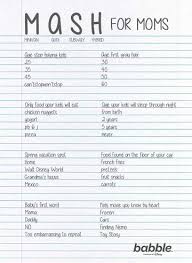 MASH FOR MOMS
MANSION SHACK SUBURB HYBRID
Age stop having kids
25
35
45
can't/stop/won't/stop
Age first gray hair
30
35
40
60
Only food your kids will eat
chicken nuggets
yogurt
pb & j
pizza
Age your kids will sleep through night
from birth
2
5
never
Spring vacation spot
home
Walt Disney World
Grandma's house
Mexico
Food found on the floor of your car
french fries
pretzels
fruit snacks
carrots
Baby's first word
Mama
Daddy
NO
Too embarrassing to repeat
Pixar movie you know by heart
Frozen
Cars
Finding Nemo
Toy Story
babble